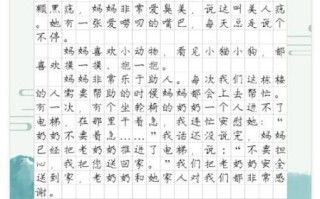 颗黑痣，妈妈非常爱臭美，说这叫美人痣
。她有一张爱唠叨的嘴巴，每天总是说个
不停。
妈妈喜欢小动物，看见小猫小狗，都
喜欢摸一摸、抱一抱。
妈妈非常乐于助人。每次我们这栋楼
的人需要帮助的时侯妈妈都会上去帮忙。
有一次，有个坐轮椅的奶奶一个人进不了
电梯，在那里干着急，我连忙安慰她：“
奶奶不要着急……”我话还没说完，妈妈
已经把老奶奶推进了电梯，说：“不要担
心，我把您送回家。”我们把老奶奶安全
送到家，老奶奶和她家人对我们都非常感
谢。